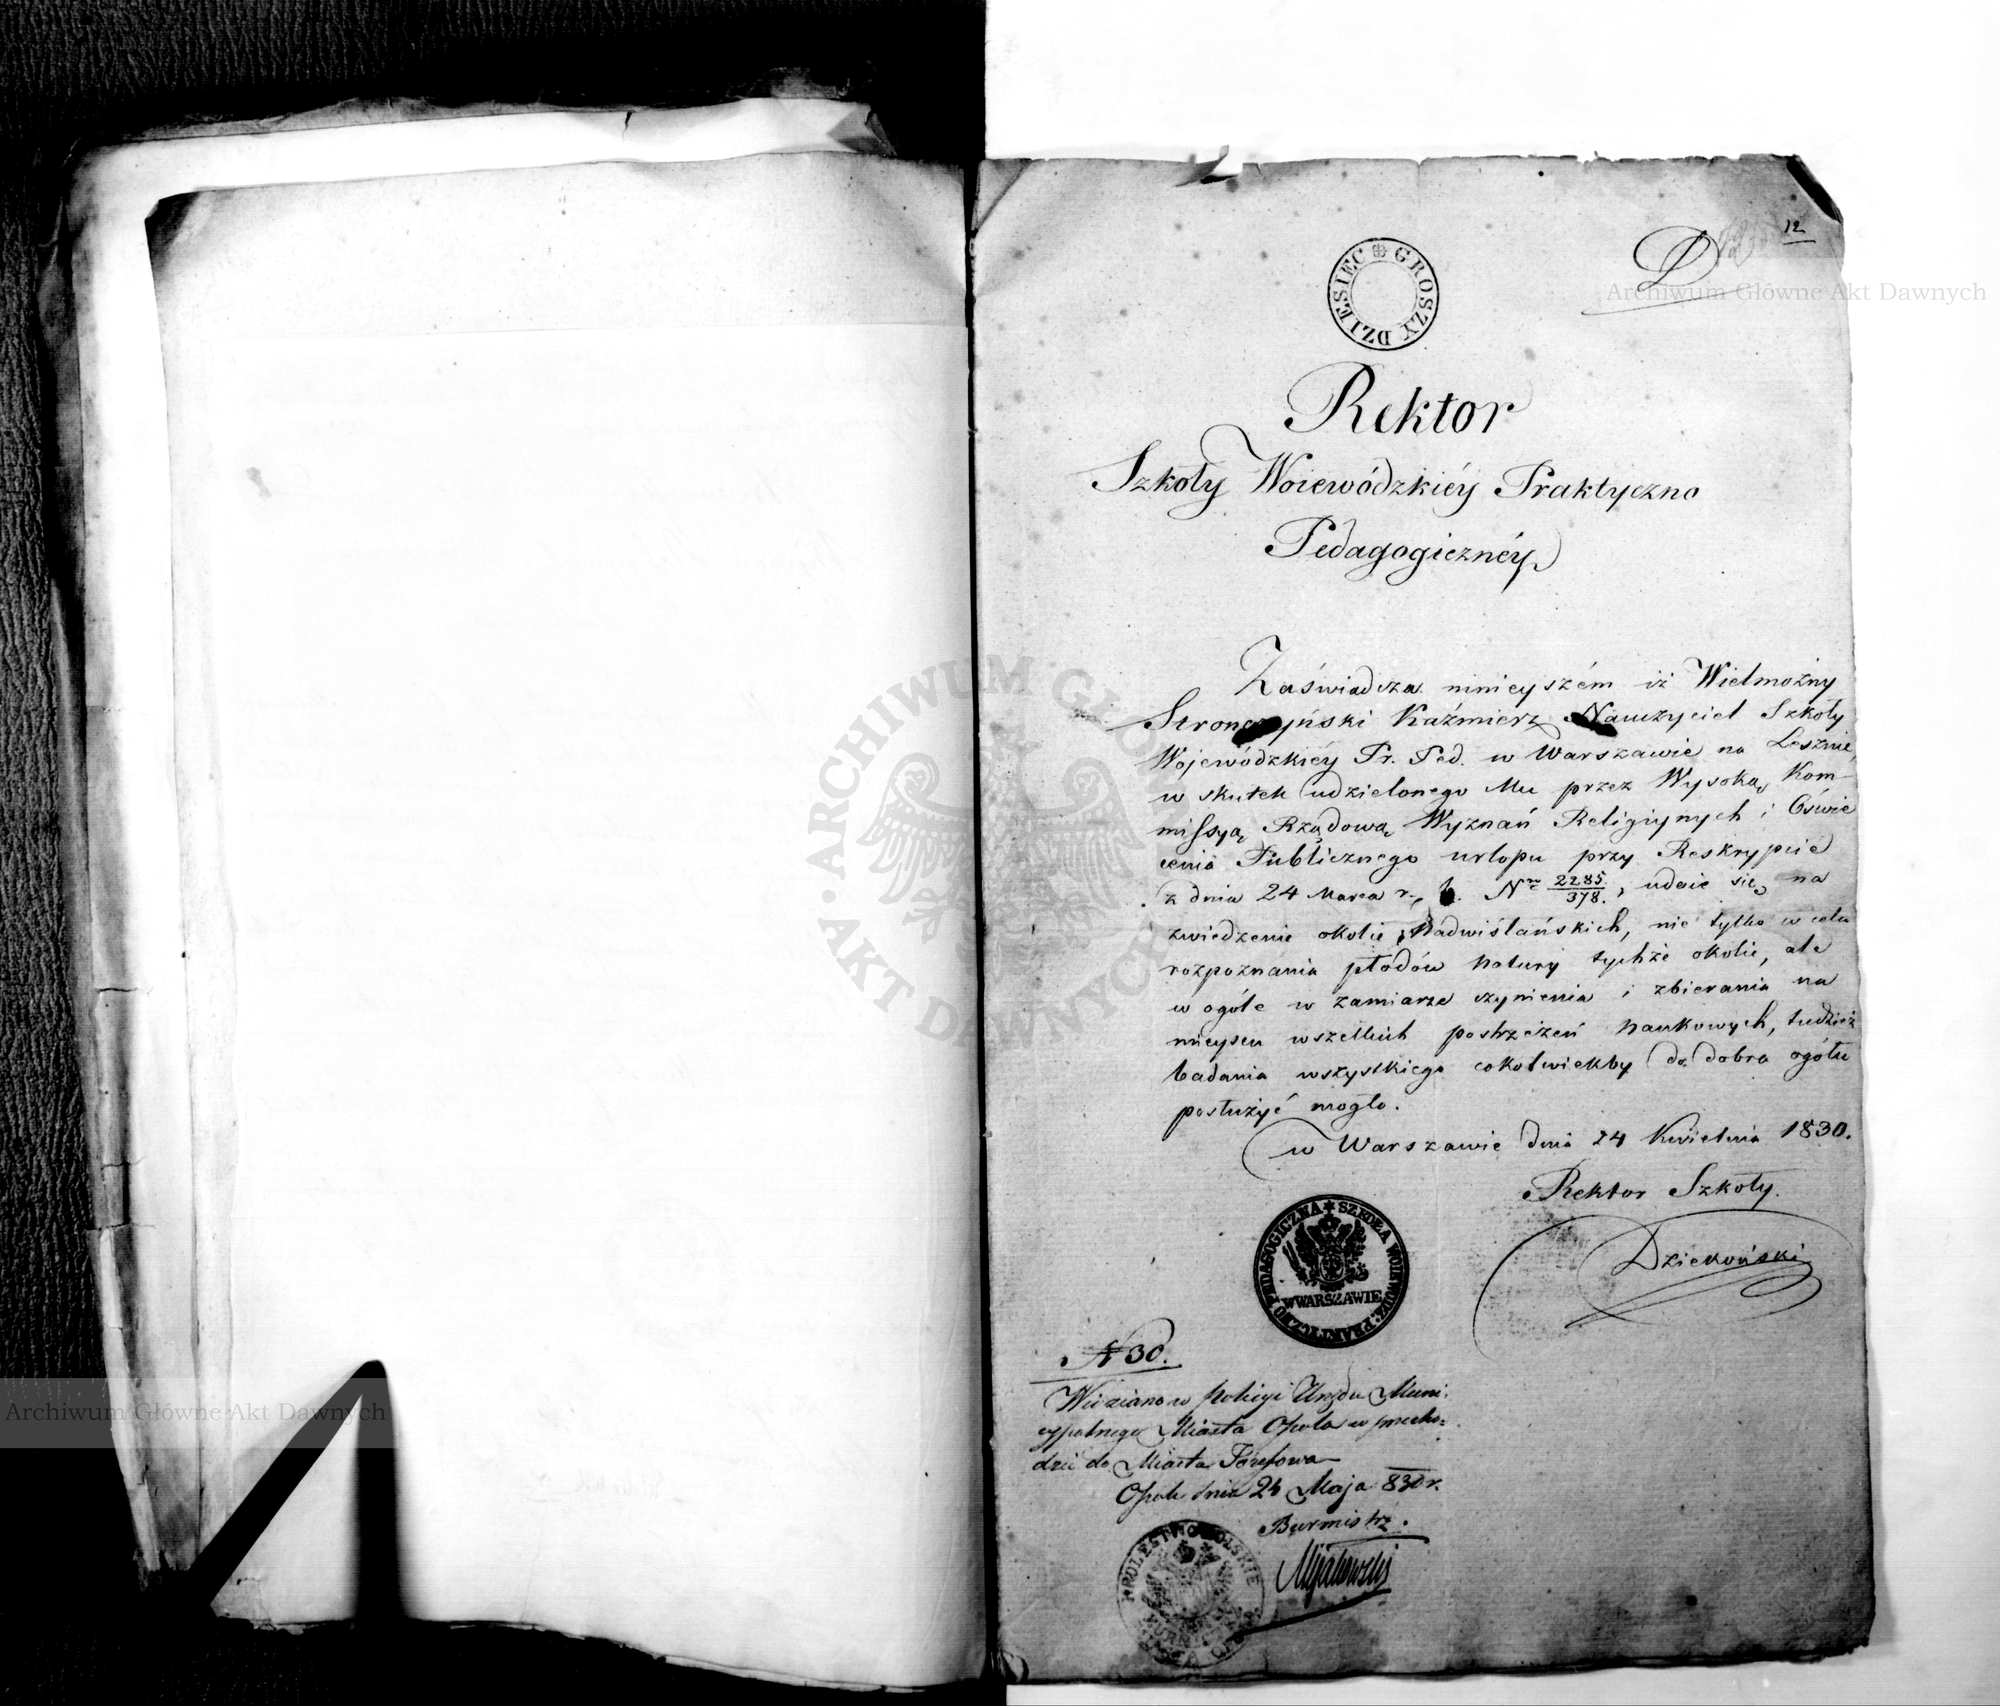 12
D
DZIESIEC GROSZY
Rektor
Szkoły Woiewódzkiéy Praktyczno
Pedagogicznéy
Zaświadcza ninieyszém iż Wielmożny
Stronczyński Kaźmierz Nauczyciel Szkoły
Wojewódzkiéy Pr. Ped. w Warszawie na Lesznie,
w skutek udzielonego Mu przez Wysoką Kom-
missyą Rządową Wyznań Religiynych i Oświe
cenia Publicznego urlopu przy Reskrypcie
z dnia 24 Marca r. b. Nro 2285/378., udaie się na
zwiedzenie okolic Nadwiślańskich, nie tylko w celu
rozpoznania płodów natury tychże okolic, ale
w ogóle w zamiarze czynienia i zbierania na
mieyscu wszelkich postrzeżeń naukowych, tudzież
badania wszystkiego cokolwiekby do dobra ogółu
posłużyć mogło.
w Warszawie dnia 24 Kwietnia 1830.
Rektor Szkoły.
Dziekoński
SZKOŁA WOIEWÓDZ: PRAKTYCZNO PEDAGOGICZNA
W WARSZAWIE
N 30.
Widziano w Policyi Urzędu Muni-
cypalnego Miasta Opola w przecho-
dzie do Miasta Józefowa
Opole dnia 24 Maja 830 r.
Burmistrz.
KROLESTWO POLSKIE
ARCHIWUM GŁÓWNE AKT DAWNYCH
Archiwum Główne Akt Dawnych
Archiwum Główne Akt Dawnych